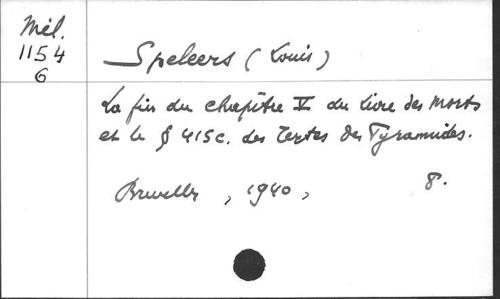 Mél.
1154
6
Speleers (Louis)
La fin du chapitre V du livre des Morts
et le § 415c. des Textes des Pyramides.
Bruxelles, 1940, 8.